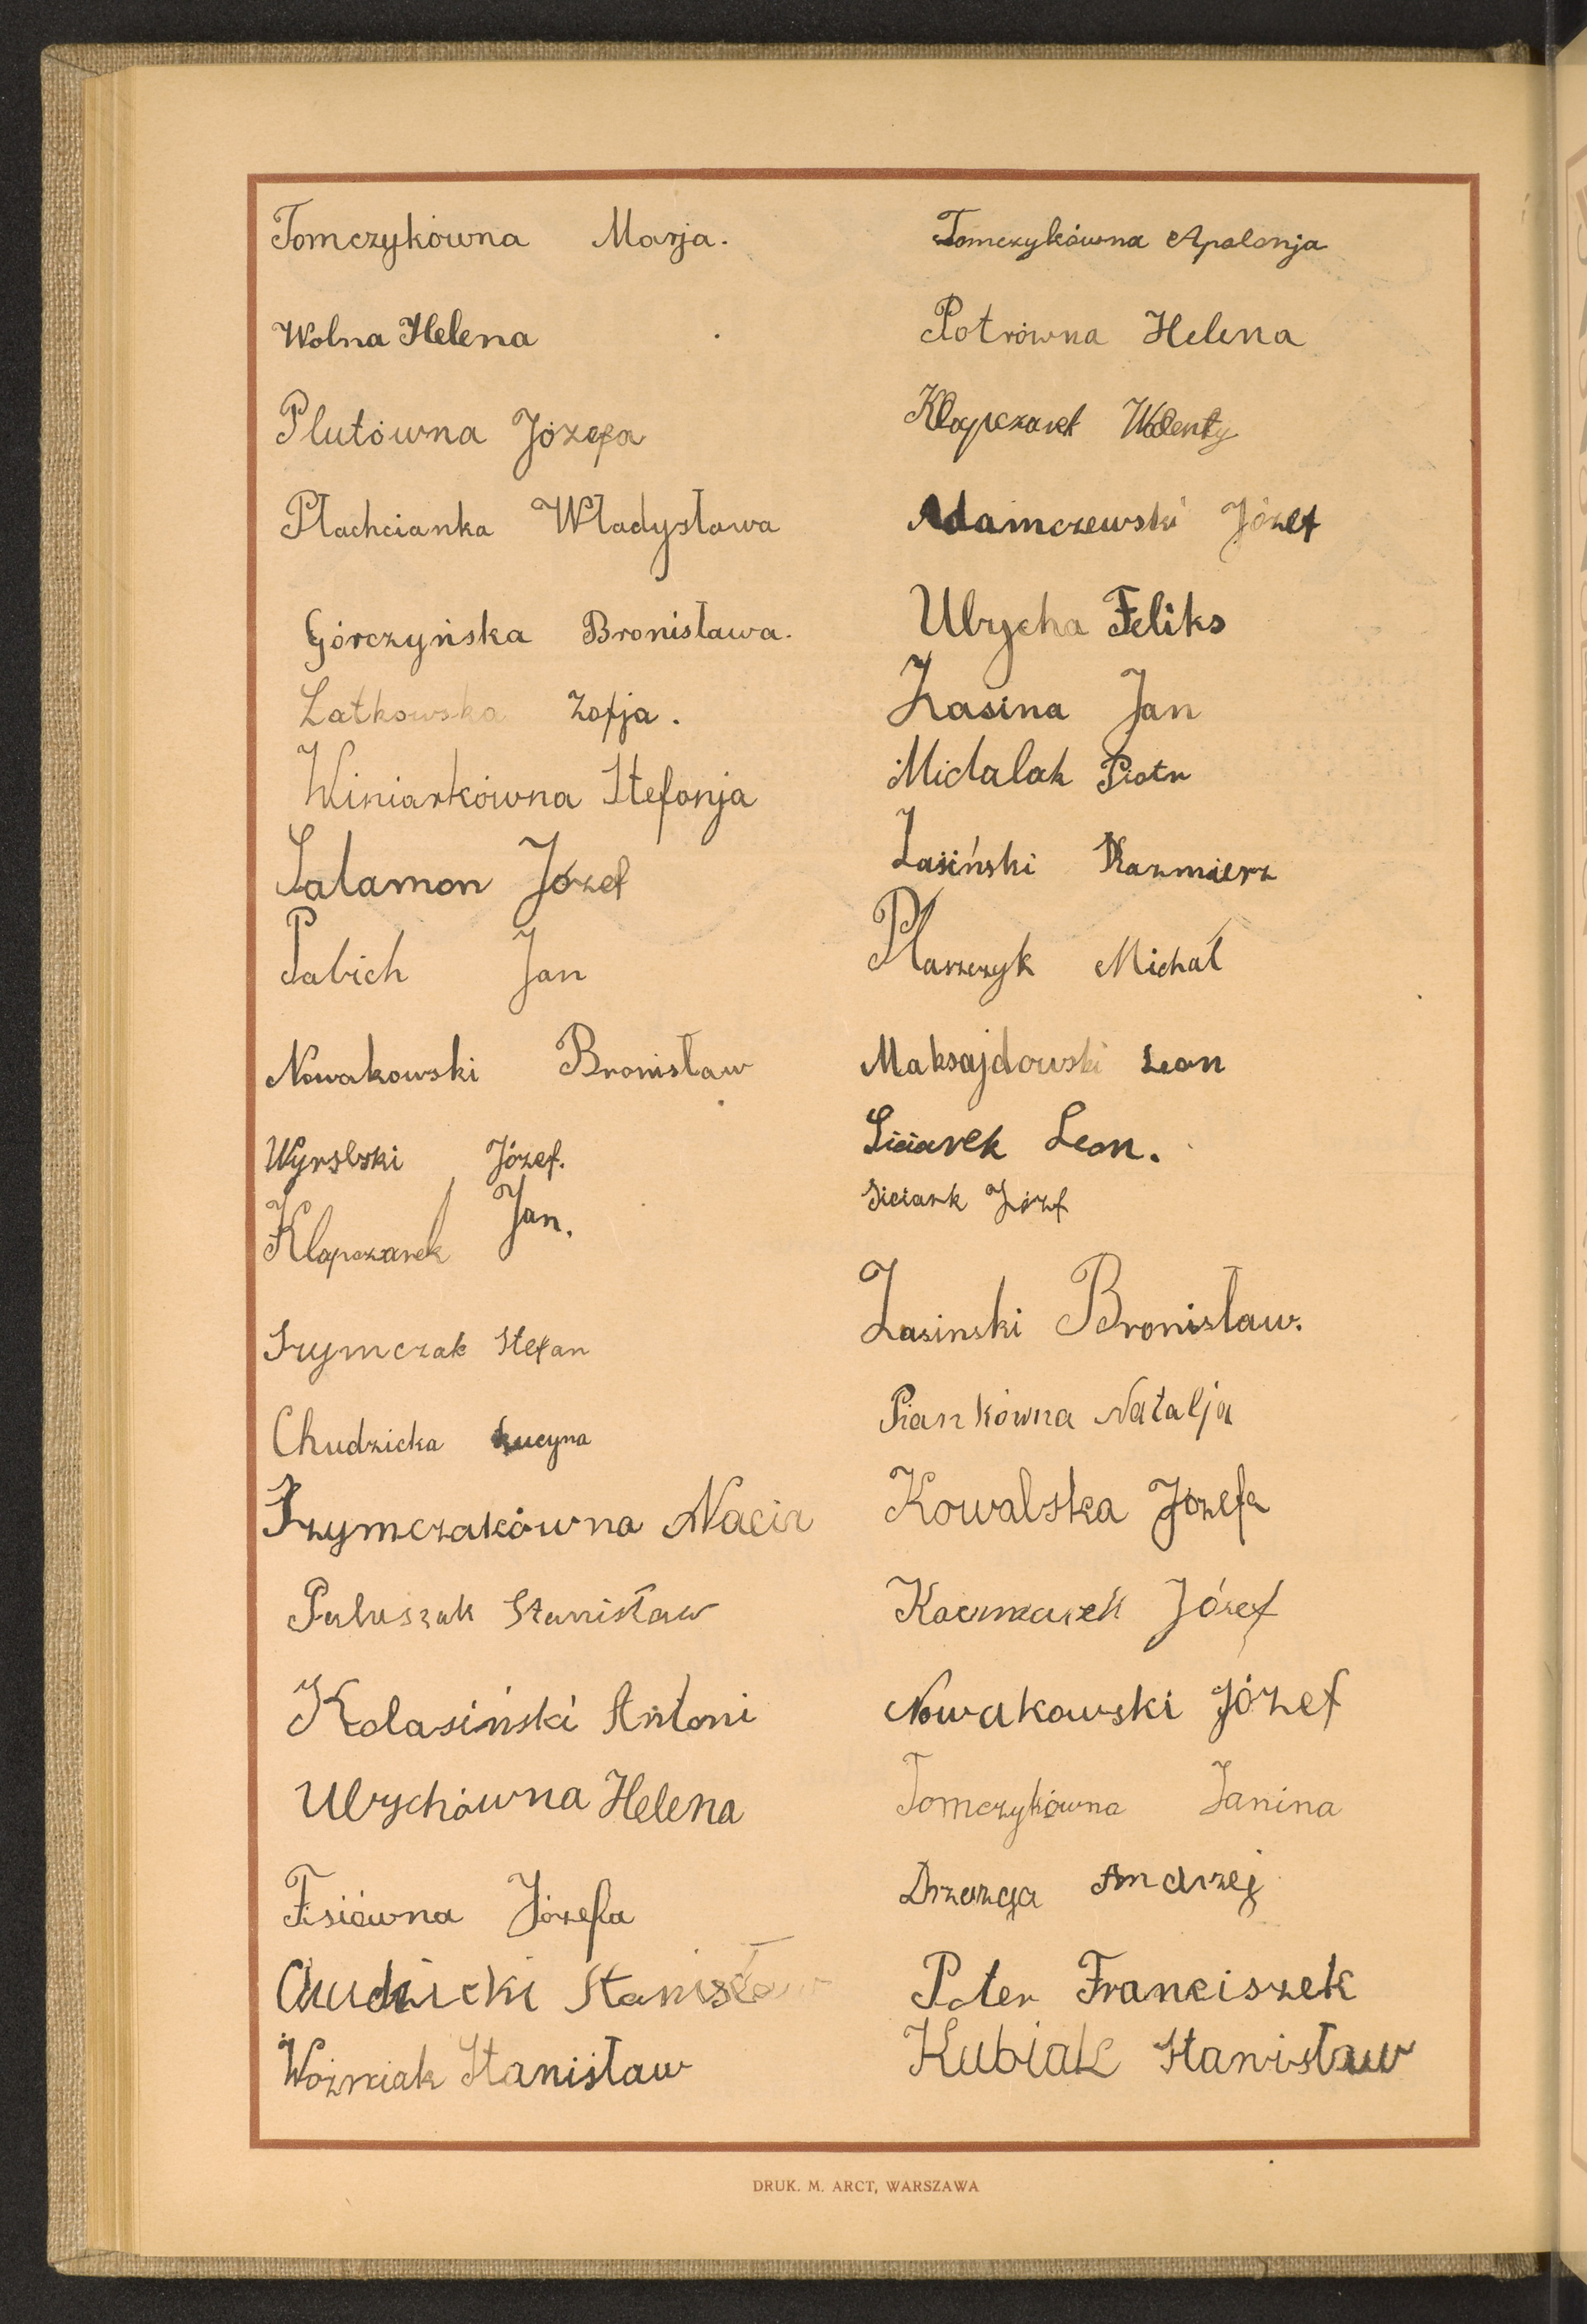 Tomczykówna Marja.
Wolna Helena
Plutówna Józefa
Płachcianka Władysława
Górczyńska Bronisława.
Latkowska Zofja.
Winiarkówna Stefanja
Salamon Józef
Pabich Jan
Nowakowski Bronisław
Wyrslski Józef.
Klapczarek Jan.
Szymczak Stefan
Chudzicka Lucyna
Szymczakówna Nacia
Paluszak Stanisław
Kolasiński Antoni
Ulrychówna Helena
Fisiówna Józefa
Chudzicki Stanisław
Woźniak Stanisław
Tomczykówna Apolonja
Potrówna Helena
Klapczarek Walenty
Adamczewski Józef
Ulrycha Feliks
Łasina Jan
Michalak Piotr
Łasiński Kazmierz
Płaszczyk Michał
Maksajdowski Leon
Siciarek Leon.
Siciark Józf
Łasinski Bronisław.
Piankówna Natalja
Kowalska Józefa
Kaczmarek Józef
Nowakowski Józef
Tomczykówna Janina
Drzazga Andrzej
Pater Franciszek
Kubiak Stanisław
DRUK. M. ARCT, WARSZAWA